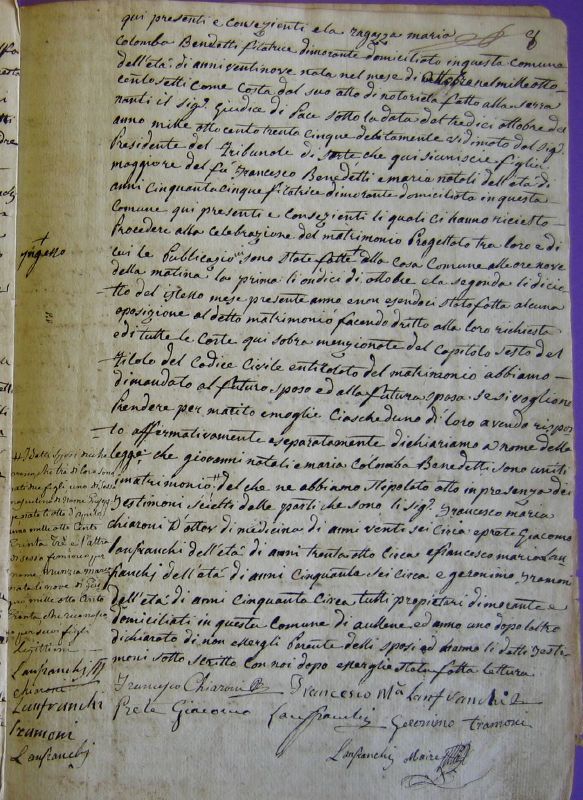 qui presenti e consezienti e la ragazza maria
Colomba Benedetti filatrice dimorante domiciliato in questa Comuna
dell'età di anni ventinove nata nel mese di ottobre nel mille otto
cento setti come Costa dal suo atto di notorietà fatto alla Serra
nanti il sig.e Giudice di Pace sotto la data dal tredici ottobre del
anno mille otto cento trenta cinque debitamente vidimato dal sig.e
Presidente del Tribunale di Sarte che qui si unisce figlia
maggiore del fù Francesco Benedetti e maria natali dell'età di
anni Cinquanta Cinque filatrice dimorante domiciliata in questa
Comune qui presenti e Consezienti li quali Ci hanno riciesto
Procedere alla Celebrazione del matrimonio Progettato tra loro e di
cui le Publicazio.i sono state fatte alla Casa Comune alle ore nove
della matina la prima li ondici di ottobre e la segonda li diciet
to del istesso mese presente anno e non esendoci stato fatta alcuna
oposizione al detto matrimonio facendo dritto alla loro richiesta
ed i tutte le Carte qui sobra menzionate del Capitolo Sesto del
titolo del Codice Civile entitolato del matrimonio abbiamo
dimandato al futuro sposo ed alla futura sposa se si voglione
Prendere per marito e moglie Ciascheduno di loro avendo rispos
to affermativamente e separatamente dichiariamo a nome della
legge che giovanni natali e maria Colomba Benedetti sono uniti
in matrimonio # del che ne abbiamo stipolato atto in presenza dei
testimoni scielti delle parti che sono li sig.i Francesco maria
chiaroni Dottor di medicina di anni venti sei Circa e prete Giacomo
Lanfranchi dell'età di anni trenta otto Circa e francesco maria Lan
franchj dell'età di anni Cinquanta sei circa e geronimo tramoni
dell'età di anni Cinquanta Circa tutti propietari dimorante e
domiciliati in questa Comune di aullene ed anno uno dopo l'altro
dichiarato di non essergli Parente delli sposi ed hanno li detti testi
moni sotto scritto Con noi dopo essergliene stato fatta lettura
Francesco Chiaroni Francesco M.a Lanfranchi
Prete Giacomo Lanfranchj Geronimo tramoni
Lanfranchj Maire
# I detti sposi
che tra di loro sono
nati due figli uno di sesso
mille otto Cento
trenta tre e l'altra
di sesso feminino per
nome
nata li nove di
mille otto Cento
trenta che
per suoi figli
legittimi
Lanfranchj
Chiaroni
Lanfranchi
tramoni
Lanfranchj